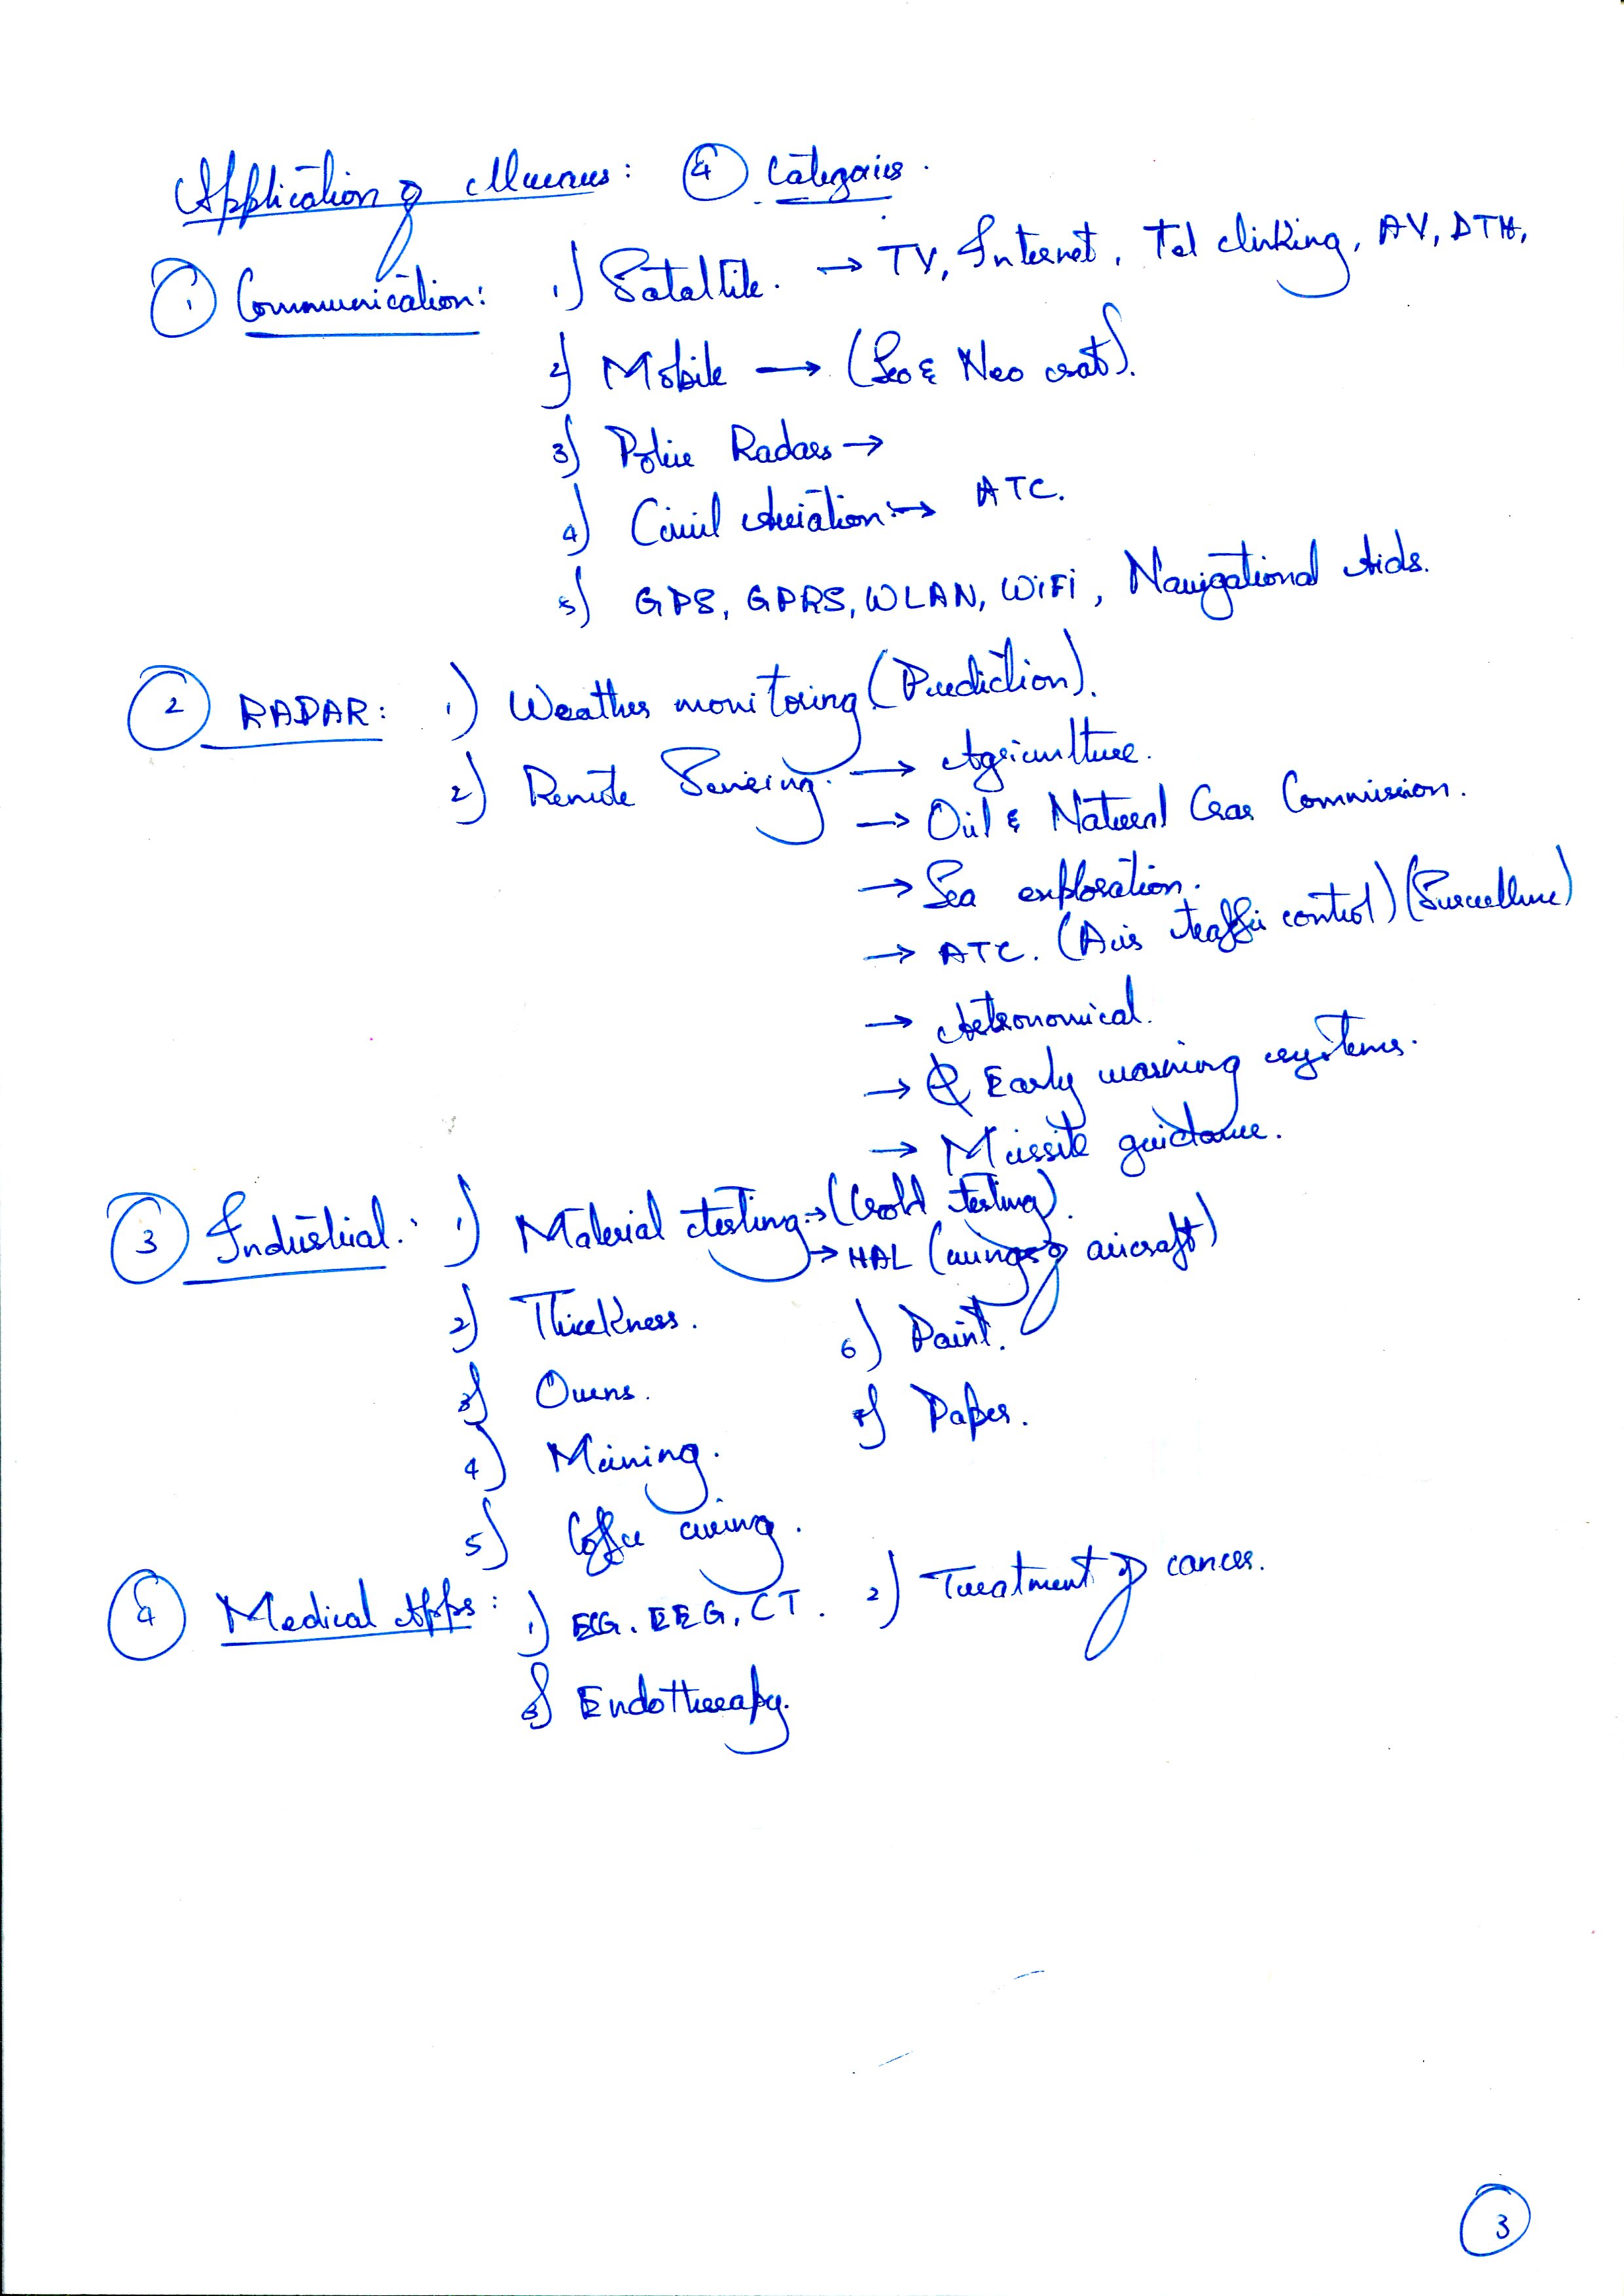 Application of Mwaves: ④ Categories.
① Communication: 1) Satallite. → TV, Internet, Tel linking, AV, DTH,
2) Mobile → (Leo & Neo
3) Police Radars →
4) Civil Aviation: → ATC.
5) GPS, GPRS, WLAN, WiFi, Navigational Aids.
② RADAR: 1) Weather monitoring (Prediction).
2) Remote Sensing. → Agriculture.
→ Oil & Natural Gas Commission.
→ Sea exploration.
→ ATC. (Air traffic control)
→ Astronomical.
→ Early warning systems.
→ Missile guidance.
③ Industrial: 1) Material testing → (Gold testing).
→ HAL (wings of aircraft)
2) Thickness. 6) Paint.
3) Ovens. 7) Paper.
4) Mining.
5) Coffee curing.
④ Medical Apps: 1) ECG. EEG, CT. 2) Treatment of cancer.
3) Endotherapy.
③